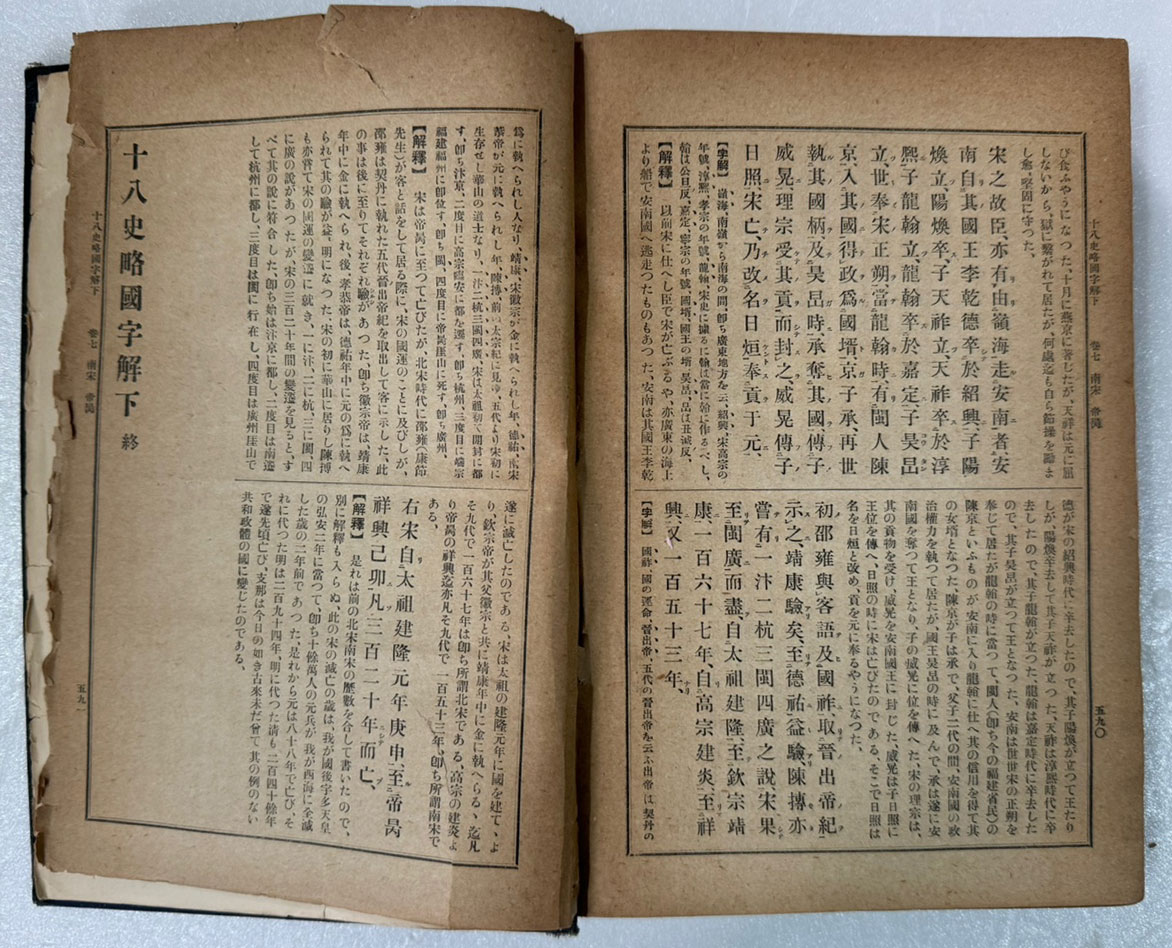 十八史略國字解下 卷七 南宋 帝昺
五九〇
び食ふやうになつた、十月に燕京に著じたが、天祥は元に屈
しないから、獄に繋がれて居たが、何處迄も自ら節操を勵ま
し奮、堅固に守つた。
宋之故臣、亦有由嶺海走安南者、安
南自其國王李乾德卒於紹興、子陽
煥立、陽煥卒、子天祚立、天祚卒於淳
熙、子龍翰立、龍翰卒於嘉定、子昊旵
立、世奉宋正朔、當龍翰時、有閩人陳
京、入其國得政、爲國壻、京子承、再世
執其國柄、及昊旵時、承奪其國、傳子
威晃、理宗受其貢、而封之、威晃傳子
日照、宋亡、乃改名日烜、奉貢于元、
【字解】 嶺海、南嶺から南海の間、卽ち廣東地方を云、紹興、宋高宗の
年號、淳熙、孝宗の年號、龍翰、宋史に據るに翰は當に𣉙に作るべし、
翰は公旦反、嘉定、寧宗の年號、國壻、國王の壻、吳旵、旵は丑減反、
【解釋】 以前宋に仕へし臣で宋が亡ぶるや、亦廣東の海上
より船で安南國へ逃走つたものもあつた、安南は其國王李乾
德が宋の紹興時代に卒去したので、其子陽煥が立つて王たり
しが、陽煥卒去して其子天祚が立つた、天祚は淳熙時代に卒
去したので、其子龍翰が立つた、龍翰は嘉定時代に卒去した
ので、其子昊旵が立つて王となつた、安南は世世宋の正朔を
奉じて居たが龍翰の時に當つて、閩人(卽ち今の福建省民)の
陳京といふものが安南に入り龍翰に仕へ其の信用を得て其
の女壻となつた、陳京が子は承で、父子二代の間、安南國の政
治權力を執つて居たが、國王昊旵の時に及んで、承は遂に安
南國を奪つて王となり、子の威晃に位を傳へた、宋の理宗は、
其の貢物を受け、威晃を安南國王に封じた、威晃は子日照に
王位を傳へ、日照の時に宋は亡びたのである、そこで日照は
名を日烜と改め、貢を元に奉るやうになつた。
初邵雍與客語及國祚、取晉出帝紀
示之、靖康驗矣、至德祐益驗、陳摶亦
嘗有一汴二杭三閩四廣之說、宋果
至閩廣而盡、自太祖建隆、至欽宗靖
康、一百六十七年、自高宗建炎、至祥
興、又一百五十三年、
【字解】 國祚、國の運命、晉出帝、五代の晉出帝を云ふ、出帝は契丹の
爲に執へられし人なり、靖康、宋徽宗が金に執へられし年、德祐、南宋
恭帝が元に執へられし年、陳摶、前の太宗紀に見ゆ、五代より宋初に
生存せし華山の道士なり、一汴二杭三閩四廣、宋は太祖初く開封に都
す、卽ち汴京、二度目に高宗臨安に都を遷す、卽ち杭州、三度目に端宗
福建福州に卽位す、卽ち閩、四度目に帝昺崖山に死す、卽ち廣州、
【解釋】 宋は帝昺に至つて亡びたが、北宋時代に邵雍(康節
先生)が客と話をして居る際に、宋の國運のことに及びしが、
邵雍は契丹に執れた五代晉出帝紀を取出して客に示した、此
の事は後に至りてそれぞれ驗があつた、卽ち徽宗帝は、靖康
年中に金に執へられ、後、孝恭帝は、德祐年中に元の爲に執へ
られて其の驗が益〻明になつた、宋の初に華山に居りし陳摶
も亦嘗て宋の國運の變遷に就き、一に汴、二に杭、三に閩、四
に廣の說があつたが、宋の三百二十年間の變遷を見ると、す
べて其の說に符合した、卽ち始は汴京に都し、二度目は南遷
して杭州に都し、三度目は閩に行在し、四度目は廣州厓山で
遂に滅亡したのである、宋は太祖の建隆元年に國を建て、よ
り、欽宗帝が其父徽宗と共に靖康年中に金に執へらるゝ迄凡
そ九代で一百六十七年は卽ち所謂北宋である、高宗の建炎よ
り帝昺の祥興迄亦凡そ九代で一百五十三年、卽ち所謂南宋で
ある、
右宋自太祖建隆元年庚申、至帝昺
祥興己卯、凡三百二十年而亡、
【解釋】 是れは前の北宋南宋の歷數を合して書いたので、
別に解釋も入らぬ、此の宋の滅亡の歲は、我が國後宇多天皇
の弘安二年に當つて、卽ち十餘萬人の元兵が我が西海に全滅
した歲の二年前であつた、是れから元は八十八年で亡び、そ
れに代つた明は二百九十四年、明に代つた淸も二百四十餘年
で遂先頃亡び、支那は今日の如き古來未だ曾て其の例のない
共和政體の國に變じたのである、
十八史略國字解下 終
十八史略國字解下 卷七 南宋 帝昺
五九一